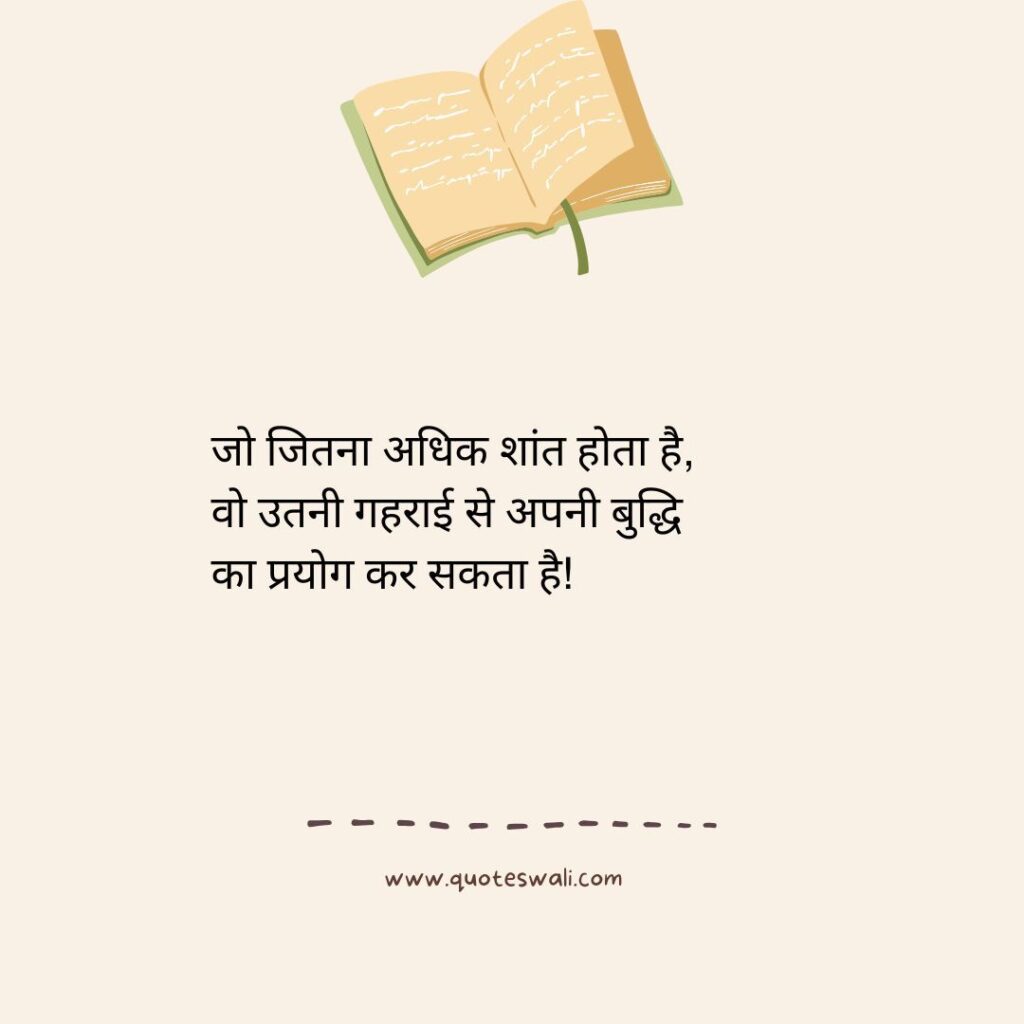 जो जितना अधिक शांत होता है,
वो उतनी गहराई से अपनी बुद्धि
का प्रयोग कर सकता है!
www.quoteswali.com